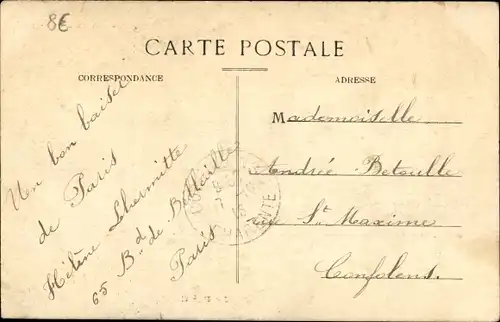 8€
CARTE POSTALE
CORRESPONDANCE
ADRESSE
Un bon baiser
de Paris
Hélène Lhermitte
65 Bd de Belleville
Paris
Mademoiselle
Andrée Betoulle
rue St Maxime
Confolens.
CHARENTE